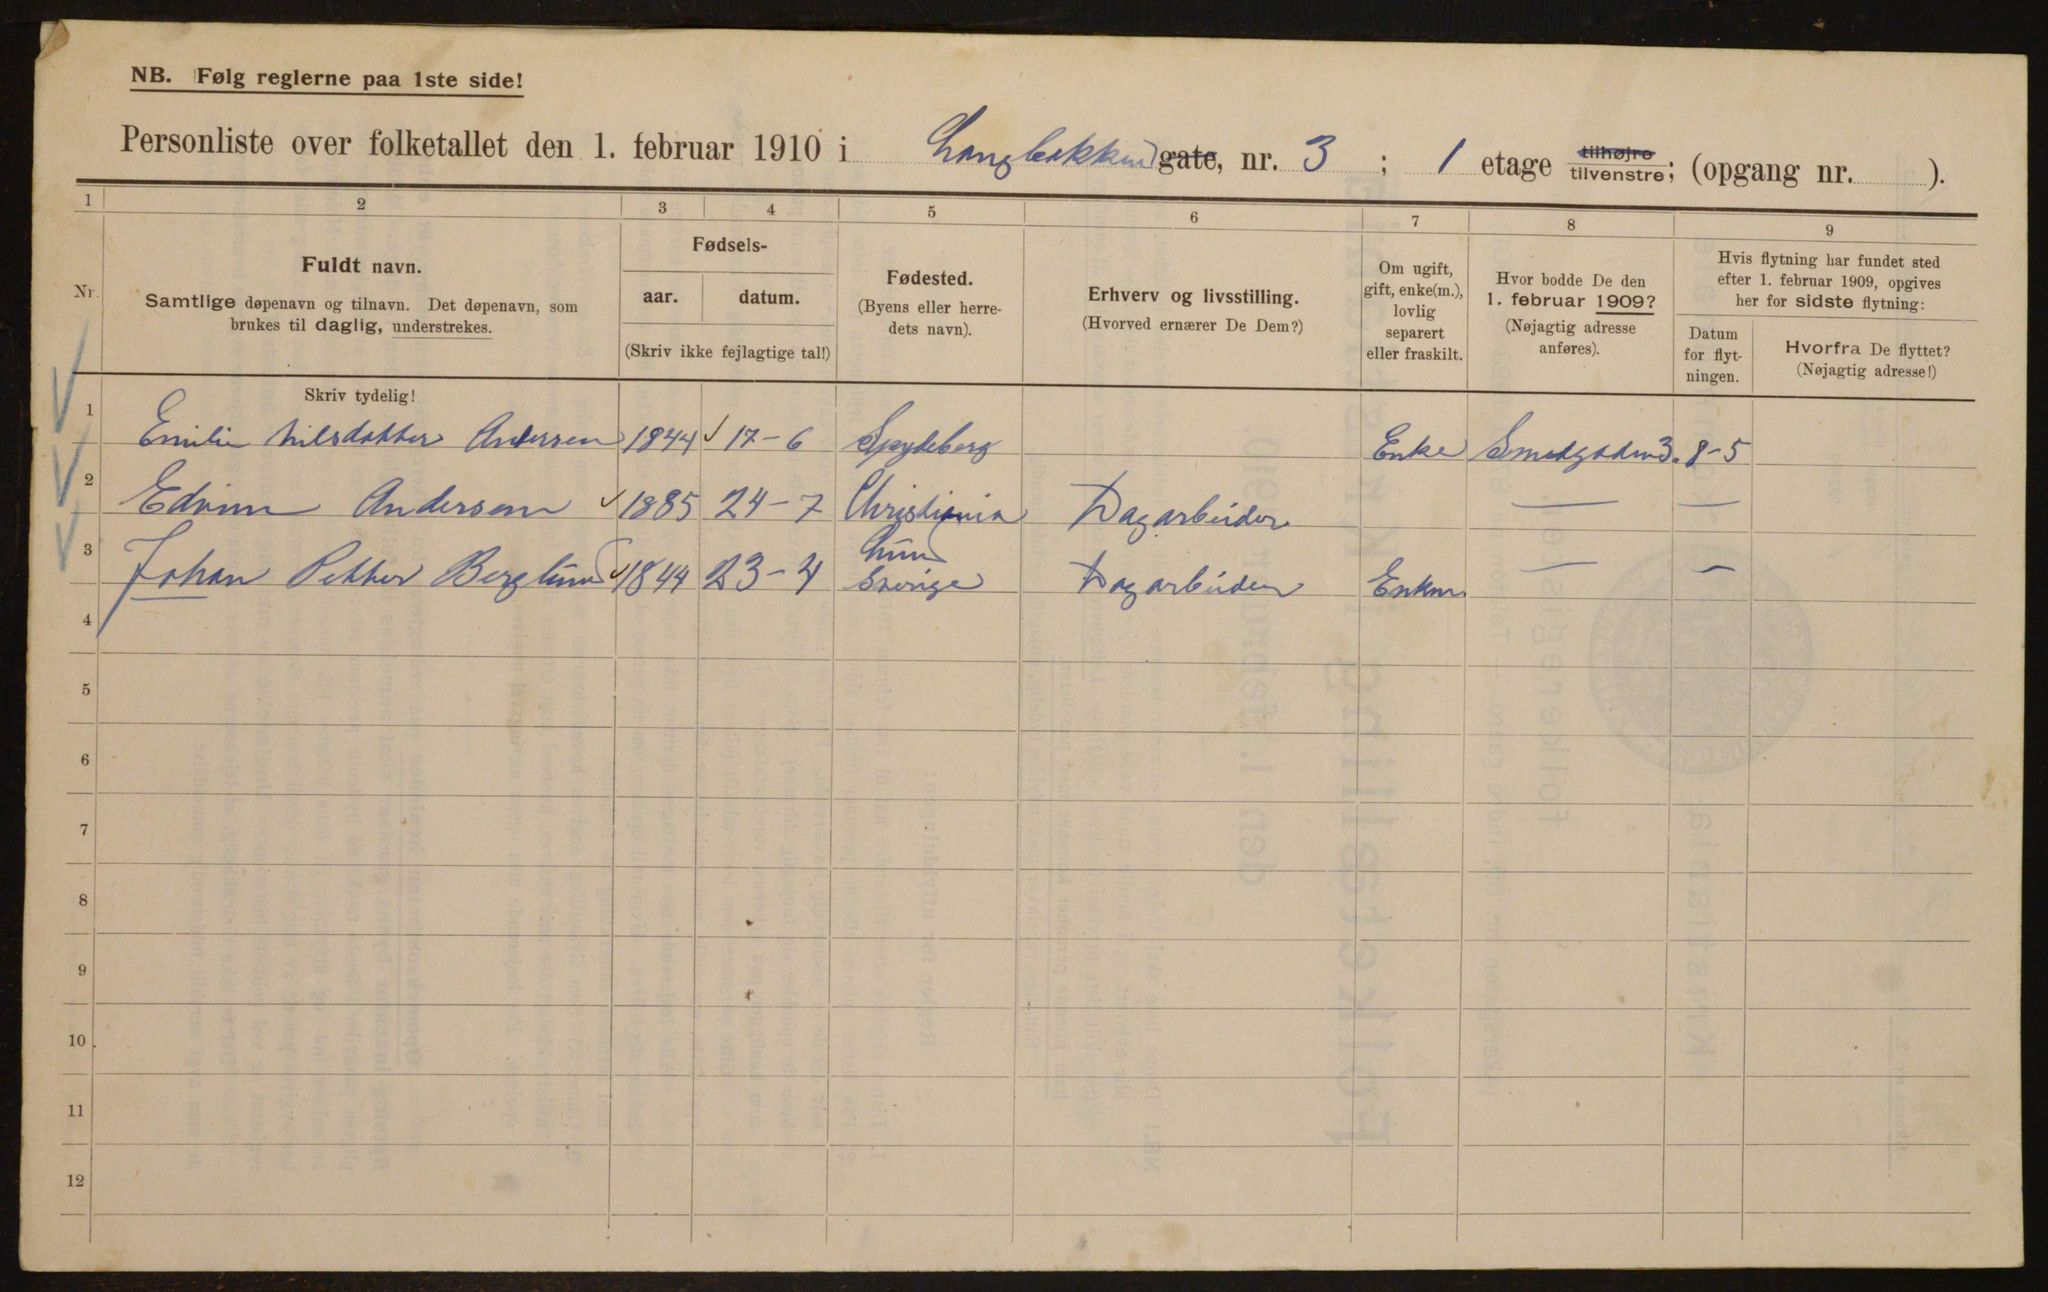 NB. Følg reglerne paa 1ste side!
Personliste over folketallet den 1. februar 1910 i Langbakken gate, nr. 3 ; 1 etage tilhøjre tilvenstre; (opgang nr. ).
1 2 3 4 5 6 7 8 9
Nr.
Fuldt navn.
Samtlige døpenavn og tilnavn. Det døpenavn, som
brukes til daglig, understrekes.
Fødsels-
aar. datum.
(Skriv ikke fejlagtige tal!)
Fødested.
(Byens eller herre-
dets navn).
Erhverv og livsstilling.
(Hvorved ernærer De Dem?)
Om ugift,
gift, enke(m.),
lovlig
separert
eller fraskilt.
Hvor bodde De den
1. februar 1909?
(Nøjagtig adresse
anføres).
Hvis flytning har fundet sted
efter 1. februar 1909, opgives
her for sidste flytning:
Datum
for flyt-
ningen.
Hvorfra De flyttet?
(Nøjagtig adresse!)
Skriv tydelig!
1 Emilie Nilsdatter Andersen 1844 17-6 Spydeberg Enke Smedgaden 3. 8-5
2 Edvin Andersen 1885 24-7 Christiania Dagarbeider — —
3 Johan Petter Berglund 1844 23-4 Lund Sverige Dagarbeider Enkm — —
4
5
6
7
8
9
10
11
12